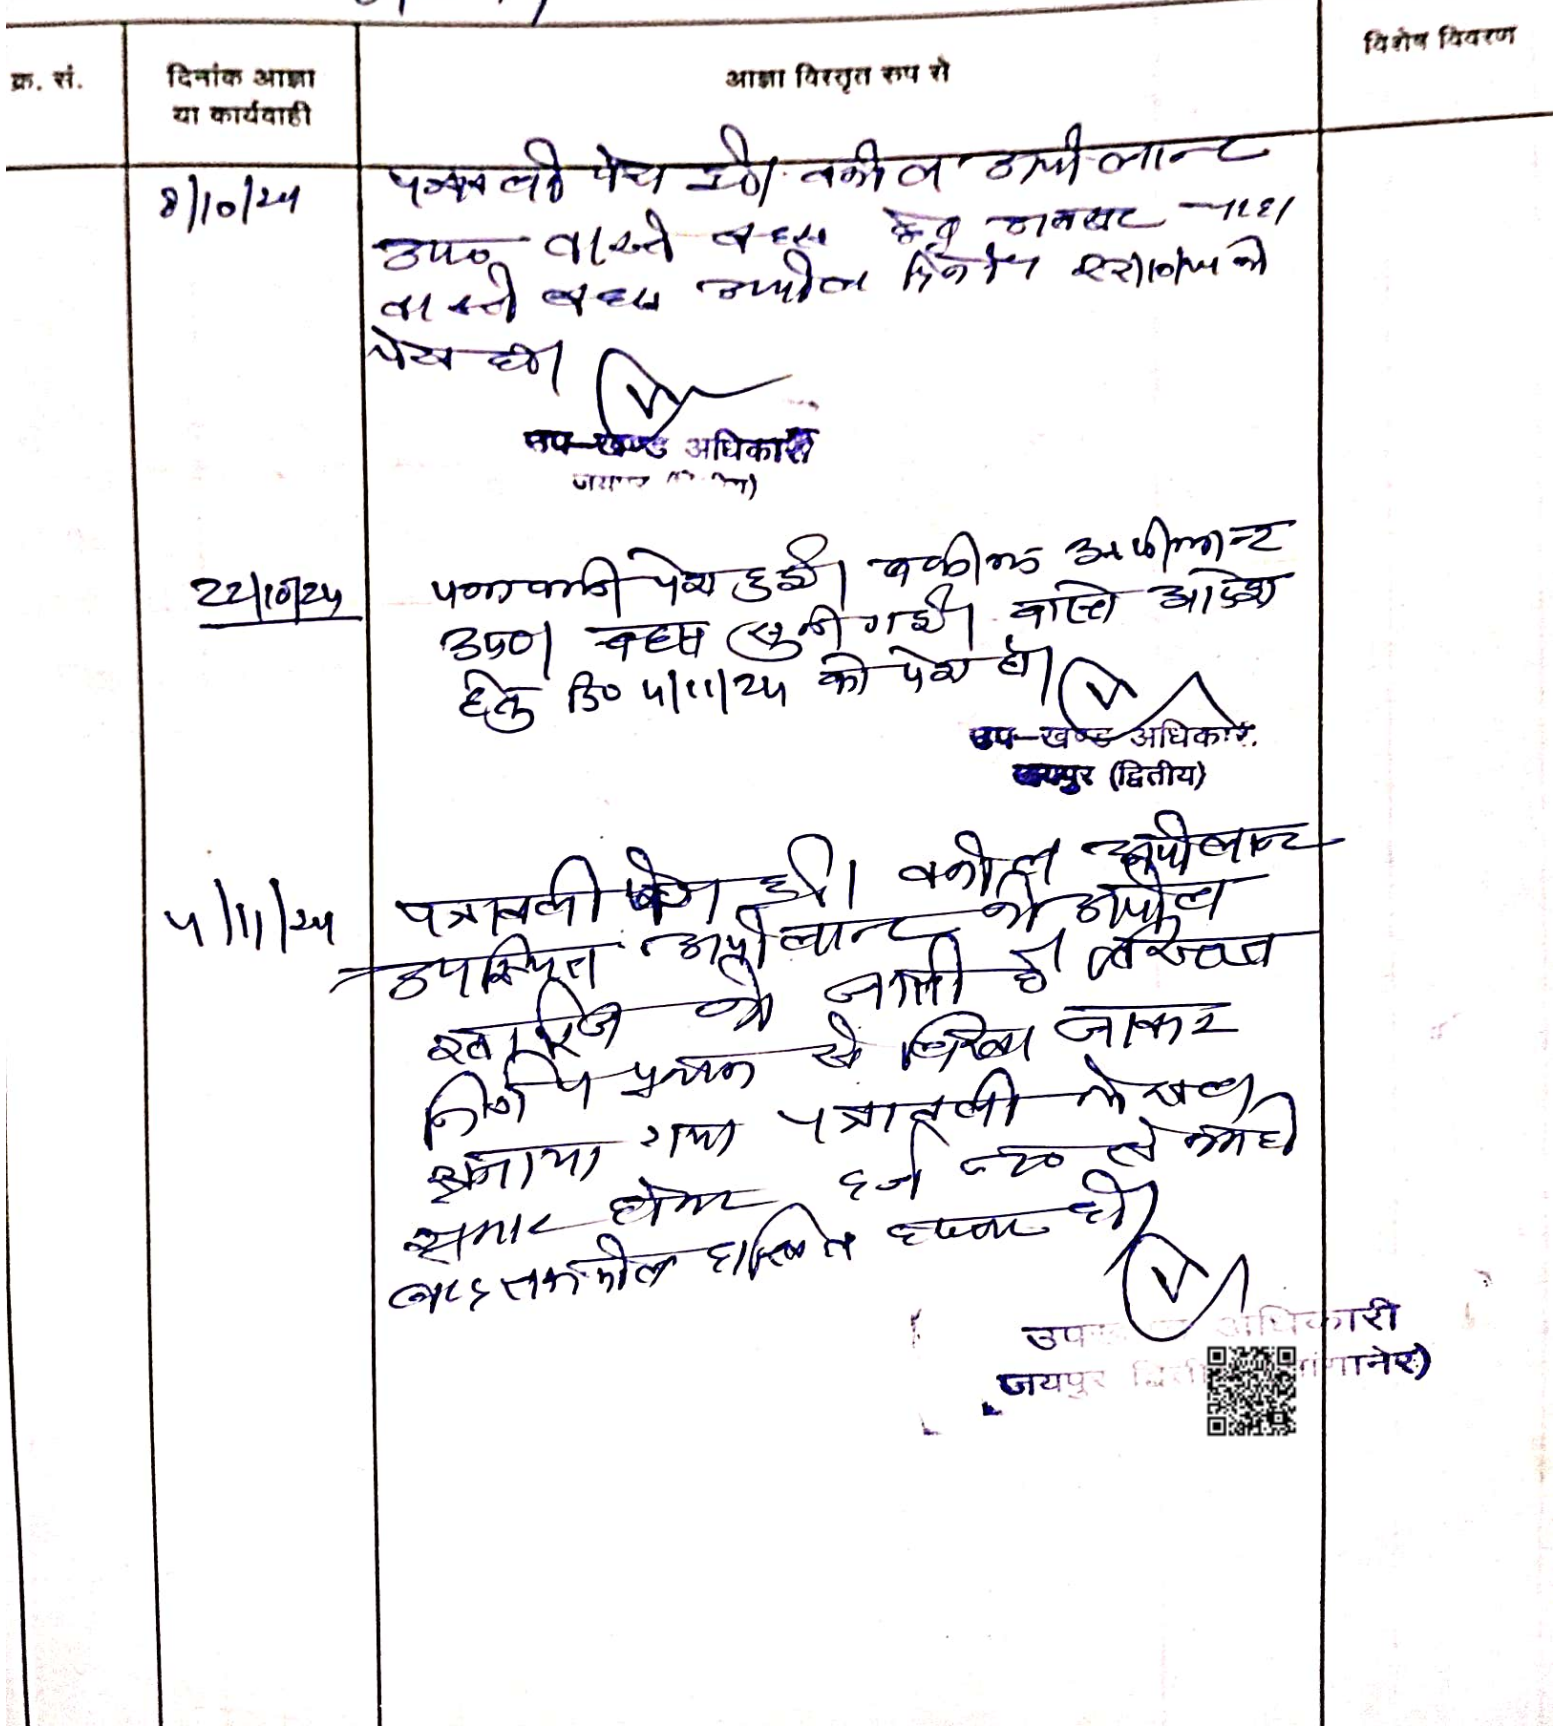 क्र. सं.
दिनांक आज्ञा
या कार्यवाही
आज्ञा विस्तृत रूप से
विशेष विवरण
8/10/24
पत्रावली पेश हुई। वकील अपीलान्ट
उप० वास्ते बहस हेतु अवसर चाहा
वास्ते बहस अपील दिनांक 22/10/24 को
पेश हो।
उप-खण्ड अधिकारी
22/10/24
पत्रावली पेश हुई। वकील अपीलान्ट
उप०। बहस सुनी गई। वास्ते आदेश
हेतु दि० 4/11/24 को पेश हो।
उप-खण्ड अधिकारी
जयपुर (द्वितीय)
4/11/24
पत्रावली पेश हुई। वकील अपीलान्ट
उपस्थित अपीलान्ट की अपील
खारिज की जाती है। विस्तृत
निर्णय पृथक से लिखा जाकर
सुनाया गया पत्रावली फैसल
शुमार होकर दर्ज न० से कम हो
बाद तकमील दाखिल दफ्तर हो।
उप अधिकारी
जयपुर द्विती सांगानेर)